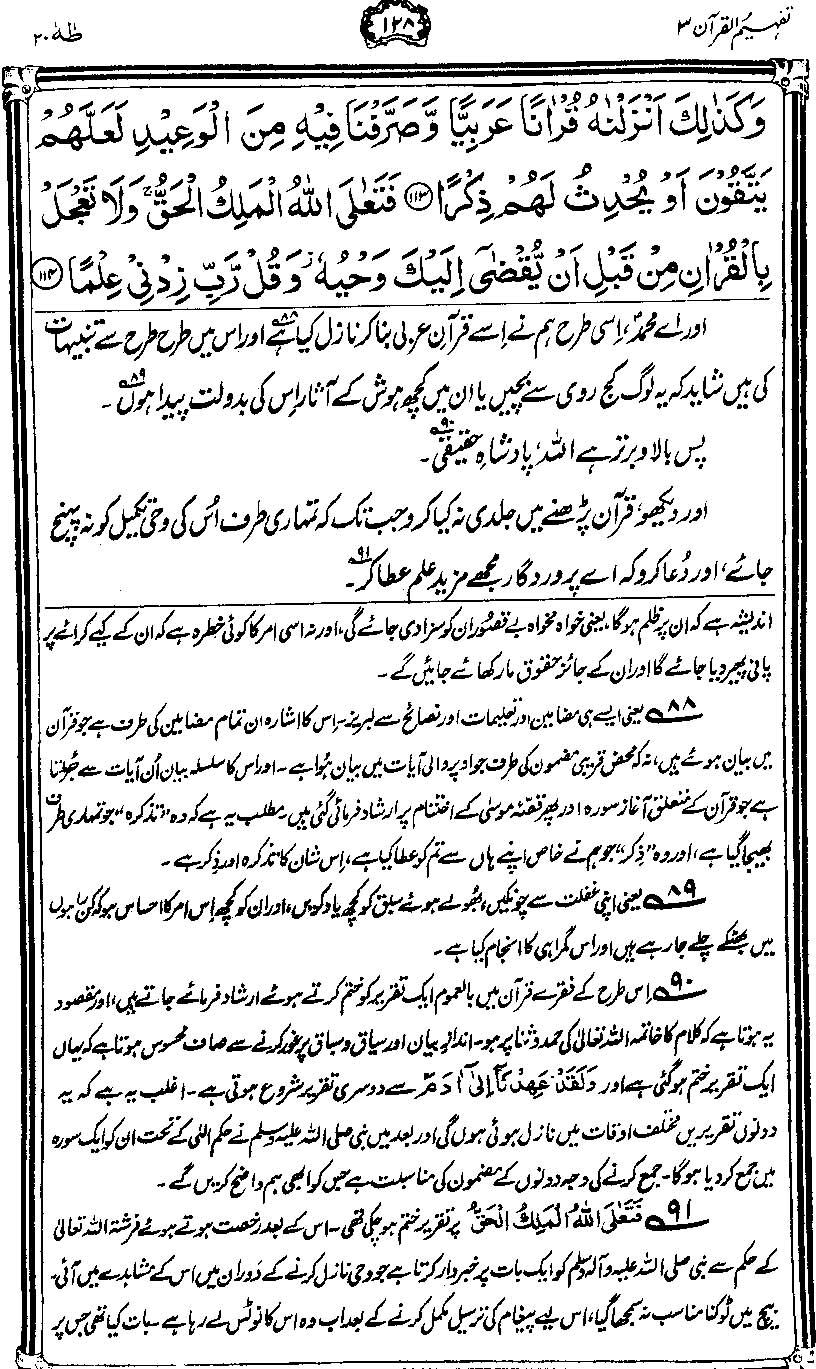 تفہیم القرآن ۳
۱۲۸
طٰہٰ ۲۰
وَكَذٰلِكَ اَنْزَلْنٰهُ قُرْاٰنًا عَرَبِيًّا وَّصَرَّفْنَا فِيْهِ مِنَ الْوَعِيْدِ لَعَلَّهُمْ
يَتَّقُوْنَ اَوْ يُحْدِثُ لَهُمْ ذِكْرًا ﴿۱۱۳﴾ فَتَعٰلَى اللّٰهُ الْمَلِكُ الْحَقُّ ۚ وَلَا تَعْجَلْ
بِالْقُرْاٰنِ مِنْ قَبْلِ اَنْ يُّقْضٰٓى اِلَيْكَ وَحْيُهٗ ۡ وَقُلْ رَّبِّ زِدْنِيْ عِلْمًا ﴿۱۱۴﴾
اور اے محمدؐ، اِسی طرح ہم نے اِسے قرآنِ عربی بنا کر نازل کیا ہے۸۸ اور اس میں طرح طرح سے تنبیہات
کی ہیں شاید کہ یہ لوگ کج روی سے بچیں یا ان میں کچھ ہوش کے آثار اِس کی بدولت پیدا ہوں۸۹۔
پس بالا و برتر ہے اللہ، پادشاہِ حقیقی۹۰۔
اور دیکھو، قرآن پڑھنے میں جلدی نہ کیا کرو جب تک کہ تمہاری طرف اُس کی وحی تکمیل کو نہ پہنچ
جائے، اور دُعا کرو کہ اے پروردگار مجھے مزید علم عطا کر۹۱۔
اندیشہ ہے کہ ان پر ظلم ہوگا، یعنی خواہ مخواہ بے قصور ان کو سزا دی جائے گی، اور نہ اسی امر کا کوئی خطرہ ہے کہ ان کے کیے کرائے پر
پانی پھیر دیا جائے گا اور ان کے جائز حقوق مار کھائے جائیں گے۔
۸۸ یعنی ایسے ہی مضامین اور تعلیمات اور نصائح سے لبریز۔ اِس کا اشارہ ان تمام مضامین کی طرف ہے جو قرآن
میں بیان ہوئے ہیں، نہ کہ محض قریبی مضمون کی طرف جو اوپر والی آیات میں بیان ہُوا ہے۔ اور اس کا سلسلہ بیان اُن آیات سے جُڑتا
ہے جو قرآن کے متعلق آغازِ سورہ اور پھر قصّۂ موسیٰ کے اختتام پر ارشاد فرمائی گئی ہیں۔ مطلب یہ ہے کہ وہ "تذکرہ" جو تمہاری طرف
بھیجا گیا ہے، اور وہ "ذِکر" جو ہم نے خاص اپنے ہاں سے تم کو عطا کیا ہے، اِس شان کا تذکرہ اور ذِکر ہے۔
۸۹ یعنی اپنی غفلت سے چونکیں، بُھولے ہوئے سبق کو کچھ یاد کریں، اور ان کو کچھ اِس امر کا احساس ہو کہ کن راہوں
میں بھٹکے چلے جا رہے ہیں اور اس گمراہی کا انجام کیا ہے۔
۹۰ اِس طرح کے فقرے قرآن میں بالعموم ایک تقریر کو ختم کرتے ہوئے ارشاد فرمائے جاتے ہیں، اور مقصود
یہ ہوتا ہے کہ کلام کا خاتمہ اللہ تعالیٰ کی حمد و ثنا پر ہو۔ اندازِ بیان اور سیاق و سباق پر غور کرنے سے صاف محسوس ہوتا ہے کہ یہاں
ایک تقریر ختم ہو گئی ہے اور وَلَقَدْ عَهِدْنَآ اِلٰٓى اٰدَمَ سے دوسری تقریر شروع ہوتی ہے۔ اغلب یہ ہے کہ یہ
دونوں تقریریں مختلف اوقات میں نازل ہوئی ہوں گی اور بعد میں نبی صلی اللہ علیہ وسلم نے حکمِ الٰہی کے تحت ان کو ایک سورہ
میں جمع کر دیا ہوگا۔ جمع کرنے کی وجہ دونوں کے مضمون کی مناسبت ہے جس کو ابھی ہم واضح کریں گے۔
۹۱ فَتَعٰلَى اللّٰهُ الْمَلِكُ الْحَقُّ پر تقریر ختم ہو چکی تھی۔ اس کے بعد رخصت ہوتے ہوئے فرشتہ اللہ تعالیٰ
کے حکم سے نبی صلی اللہ علیہ وآلہ وسلم کو ایک بات پر خبردار کرتا ہے جو وحی نازل کرنے کے دَوران میں اس کے مشاہدے میں آئی۔
بیچ میں ٹوکنا مناسب نہ سمجھا گیا، اس لیے پیغام کی ترسیل مکمل کرنے کے بعد اب وہ اس کا نوٹس لے رہا ہے۔ بات کیا تھی جس پر